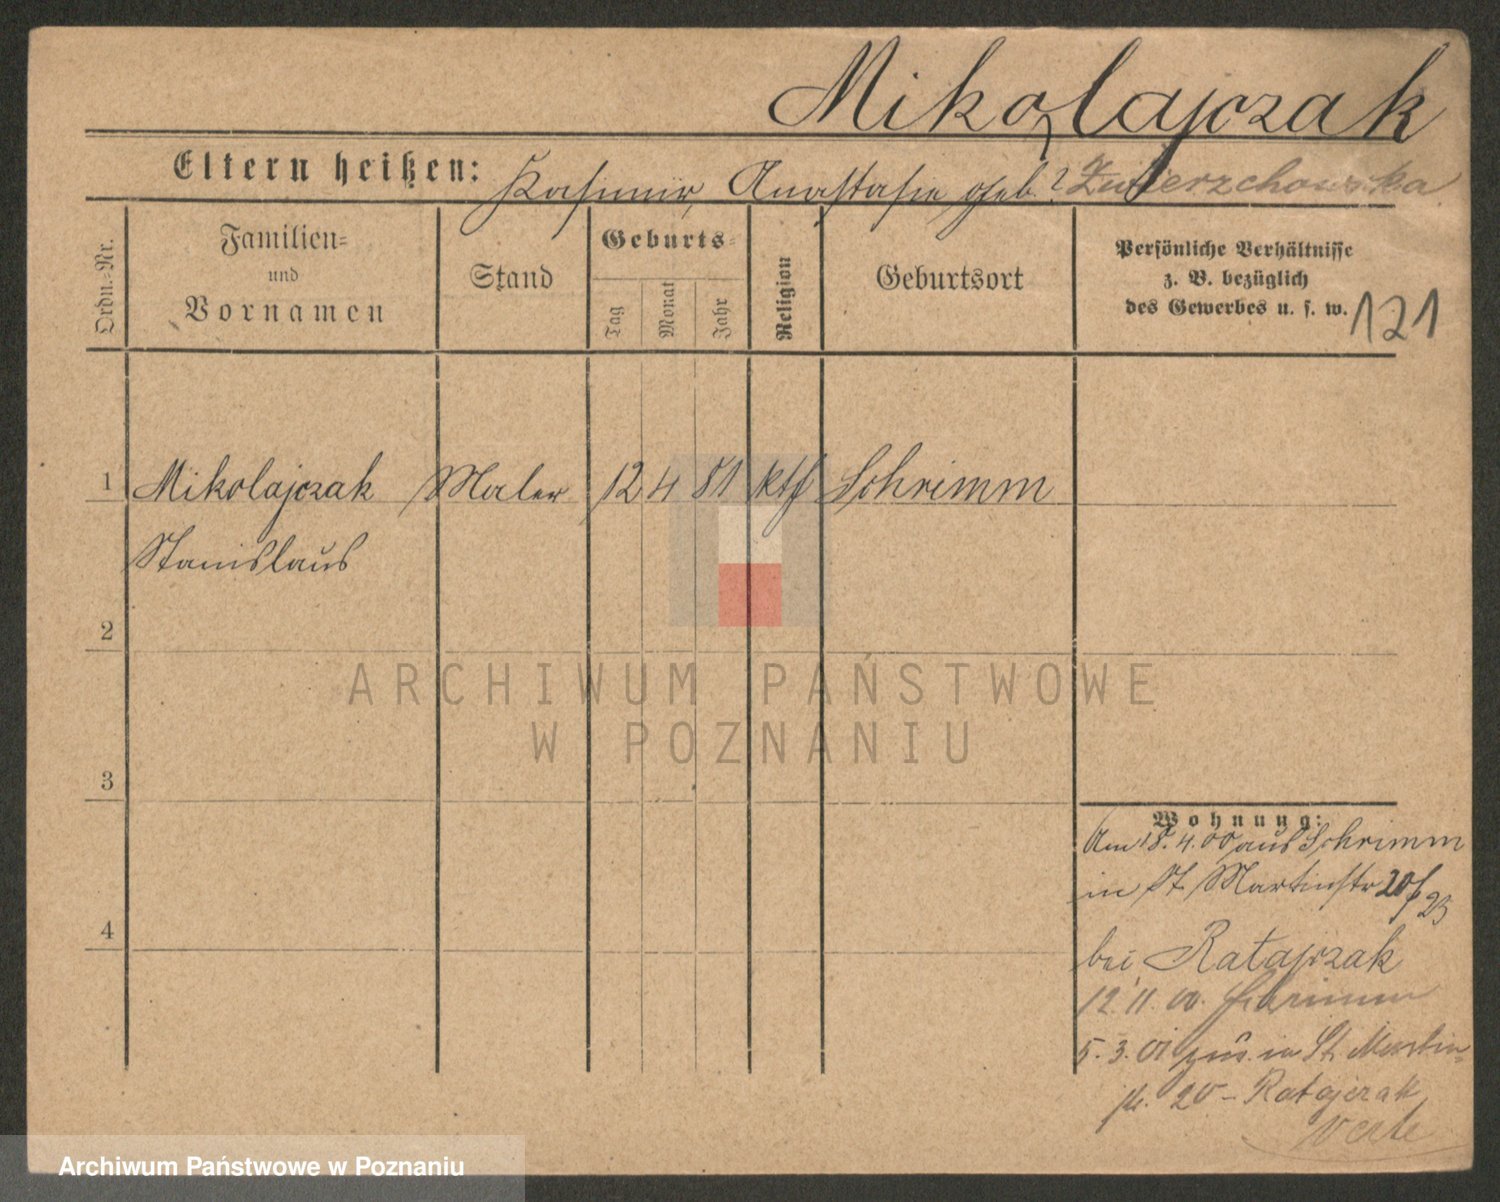 Mikolajczak
Eltern heißen: Kasimir, Anastasie geb. ? Zwierzchowska
Ordn.-Nr.
Familien-
und
Vornamen
Stand
Geburts-
Tag
Monat
Jahr
Religion
Geburtsort
Persönliche Verhältnisse
z. B. bezüglich
des Gewerbes u. s. w.
121
1 Mikolajczak Maler 12 4 81 kth Schrimm
Stanislaus
2
3
4
Wohnung:
Am 18.4.00 aus Schrimm
in St. Martinstr 20/23
bei Ratajczak
12.11.00. Schrimm
5.3.01 zur. in St. Martin-
str. 20 - Ratajczak
Verte
ARCHIWUM PAŃSTWOWE
W POZNANIU
Archiwum Państwowe w Poznaniu